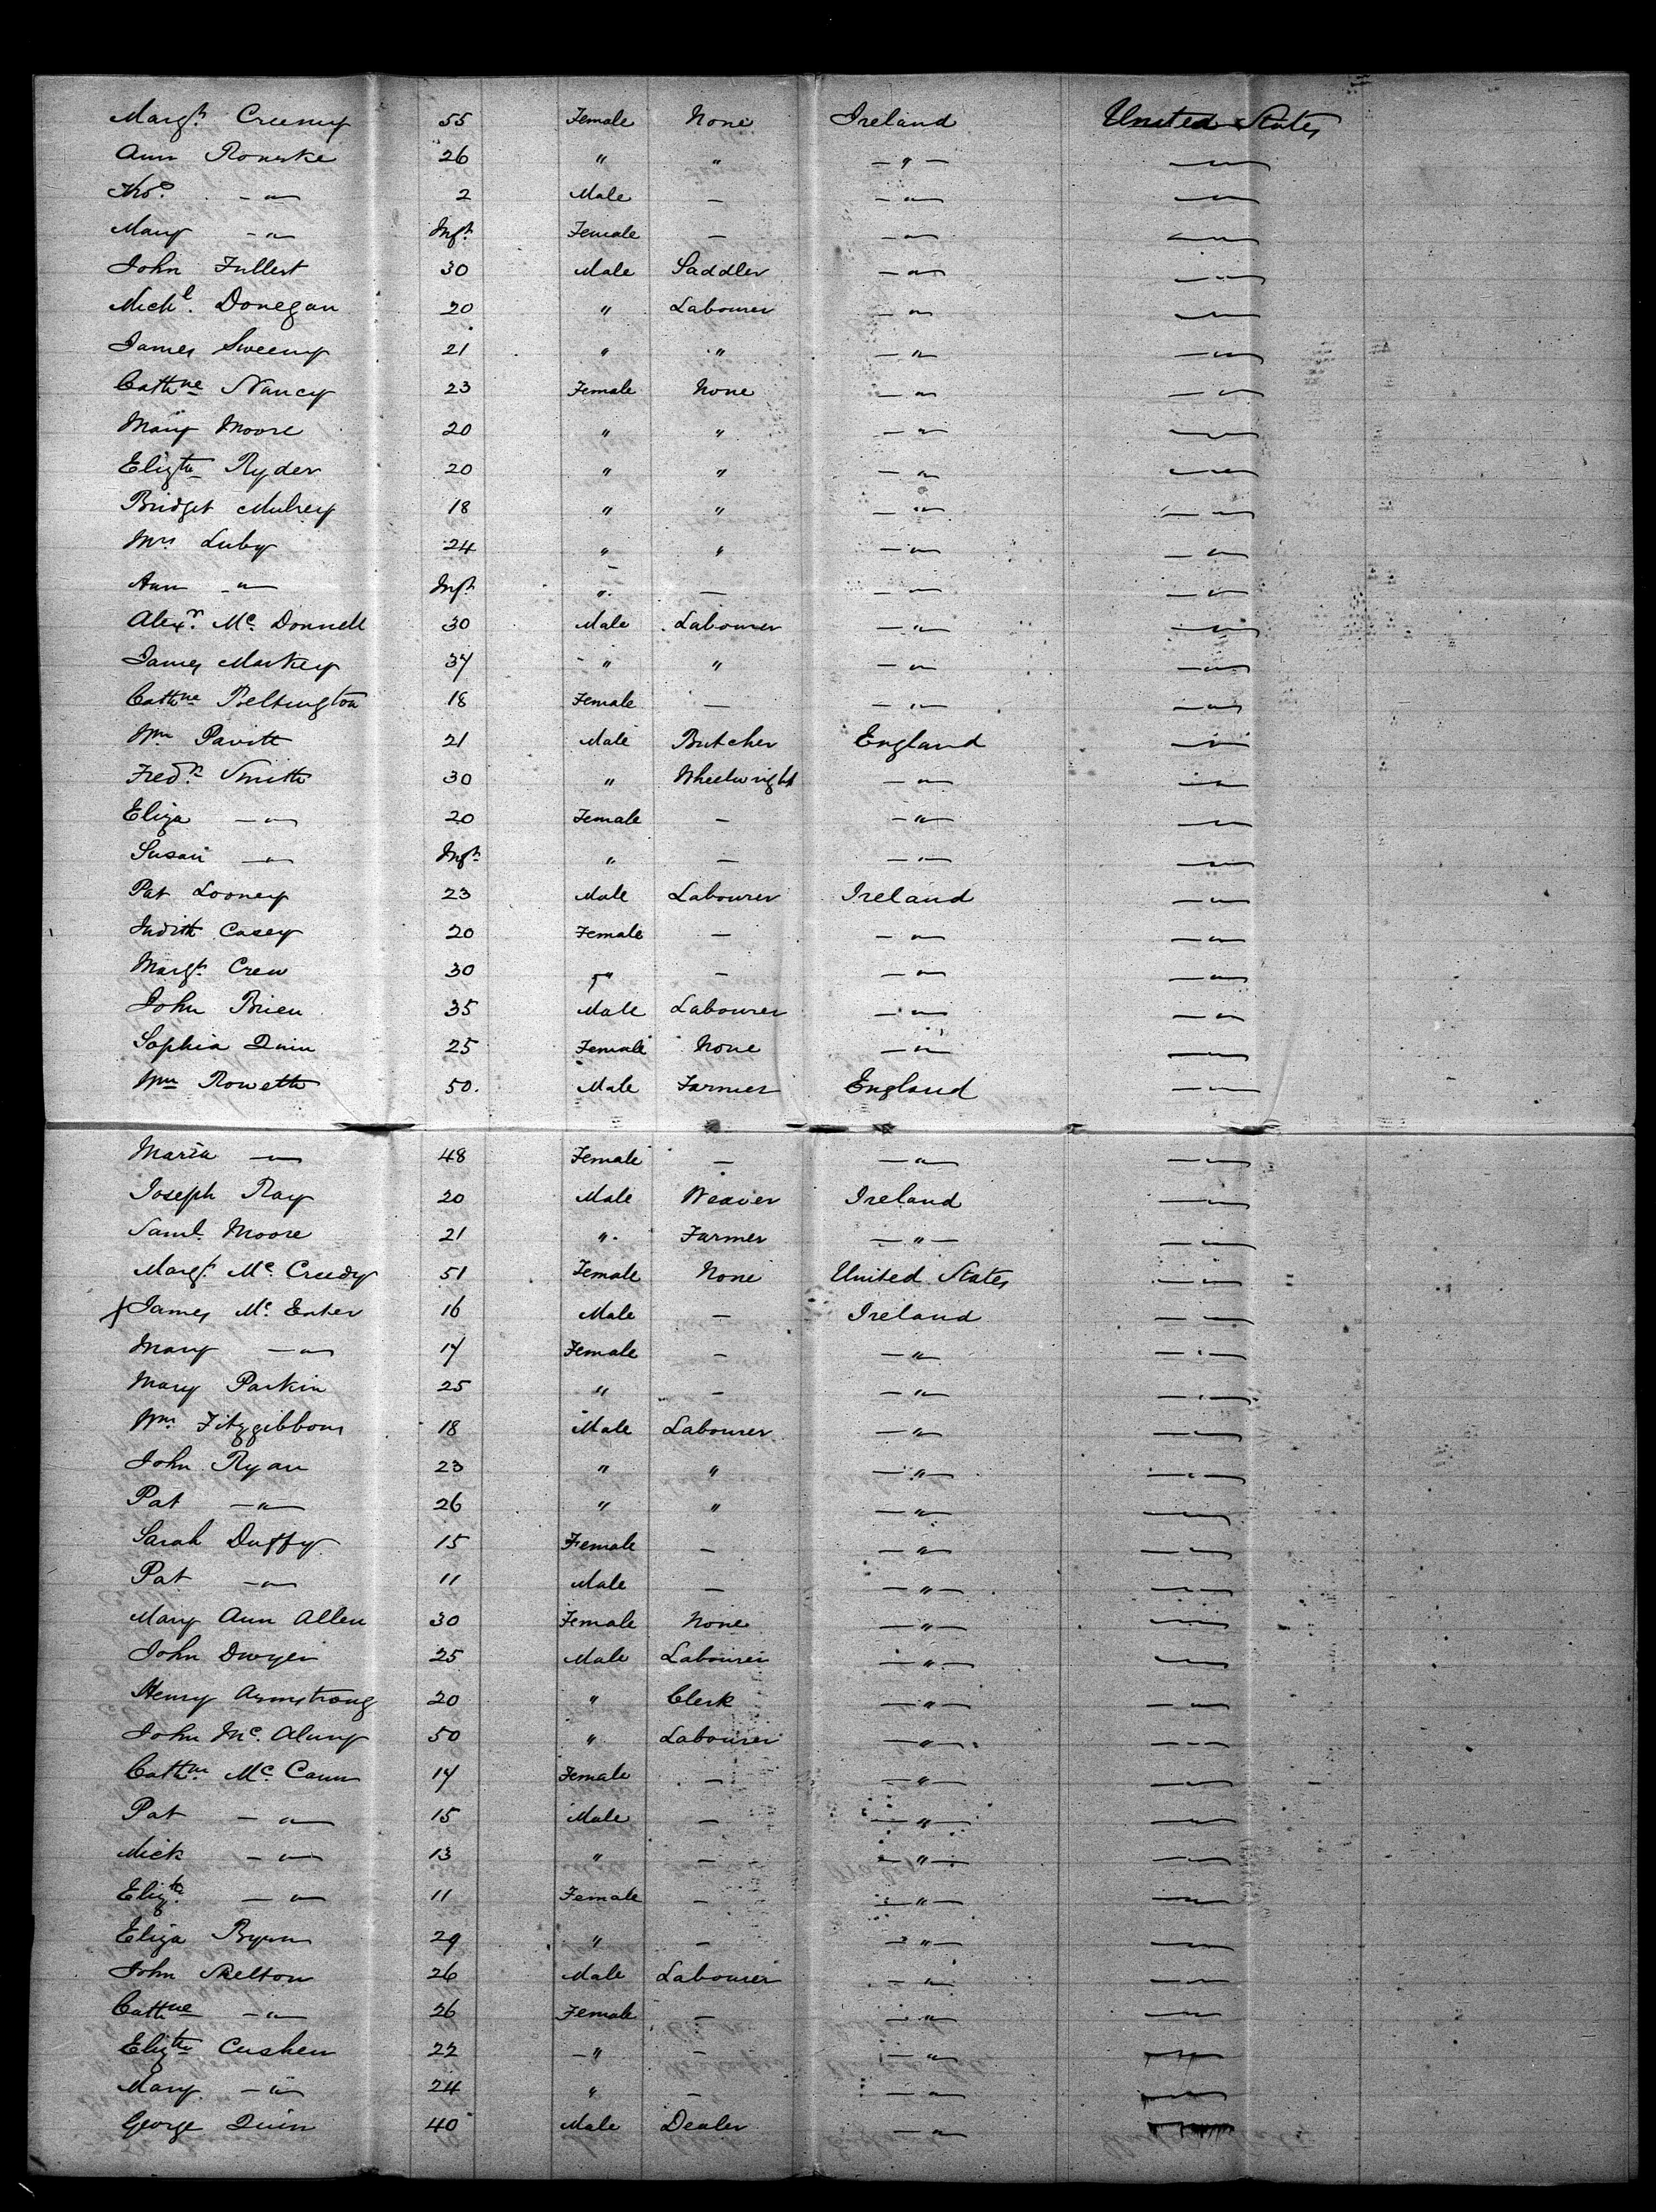 Margt. Creemy 55 Female None Ireland United States
Ann Rourke 26 " " — " — — " —
Thos. — " — 2 Male — — " — — " —
Mary — " — Inft. Female — — " — — " —
John Fullert 30 Male Saddler — " — — " —
Michl. Donegan 20 " Labourer — " — — " —
James Sweeny 21 " " — " — — " —
Cathne Nancy 23 Female None — " — — " —
Mary Moore 20 " " — " — — " —
Elizth Ryder 20 " " — " — — " —
Bridget Mulrey 18 " " — " — — " —
Mrs Luby 24 " " — " — — " —
Ann — " — Inft. " — — " — — " —
Alexr. Mc. Donnell 30 Male Labourer — " — — " —
James Markey 34 " " — " — — " —
Cathne 18 Female — — " — — " —
Wm Pavitt 21 Male Butcher England — " —
Fredk Smith 30 " Wheelwright — " — — " —
Eliza — " — 20 Female — — " — — " —
Susan — " — Inft " — — " — — " —
Pat Looney 23 Male Labourer Ireland — " —
Judith Casey 20 Female — — " — — " —
Margt. Crew 30 " — — " — — " —
John Brien 35 Male Labourer — " — — " —
Sophia Quin 25 Female None — " — — " —
Wm Rowett 50. Male Farmer England — " —
Maria — " — 48 Female — — " — — " —
Joseph Ray 20 Male Weaver Ireland — " —
Saml. Moore 21 " Farmer — " — — " —
Margt. Mc. Creedy 51 Female None United States — " —
James Mc. Enter 16 Male — Ireland — " —
Mary — " — 14 Female — — " — — " —
Mary Parkin 25 " — — " — — " —
Wm. Fitzgibbons 18 Male Labourer — " — — " —
John Ryan 23 " " — " — — " —
Pat — " — 26 " " — " — — " —
Sarah Duffy 15 Female — — " — — " —
Pat — " — 11 Male — — " — — " —
Mary Ann Allen 30 Female None — " — — " —
John Dwyer 25 Male Labourer — " — — " —
Henry Armstrong 20 " Clerk — " — — " —
John Mc. Aluny 50 " Labourer — " — — " —
Cathne Mc. Cann 14 Female — — " — — " —
Pat — " — 15 Male — — " — — " —
Mick — " — 13 " — — " — — " —
Elizth — " — 11 Female — — " — — " —
Eliza Byrn 29 " — — " — — " —
John Skelton 26 Male Labourer — " — — " —
Cathne — " — 26 Female — — " — — " —
Elizth Cushen 22 — " — — " — — " —
Mary — " — 24 " — — " — — " —
George Quin 40 Male Dealer — " — — " —